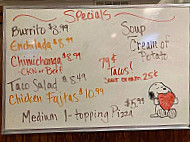 Specials
Burrito $8.99
Enchilada $8.99
Chimichanga $8.99
-CKN or Beef
Taco Salad $8.49
Chicken Fajitas $10.99
Soup
Cream of
Potato
79¢
Tacos!
Sour cream 25¢
$5.99
Medium 1-topping Pizza